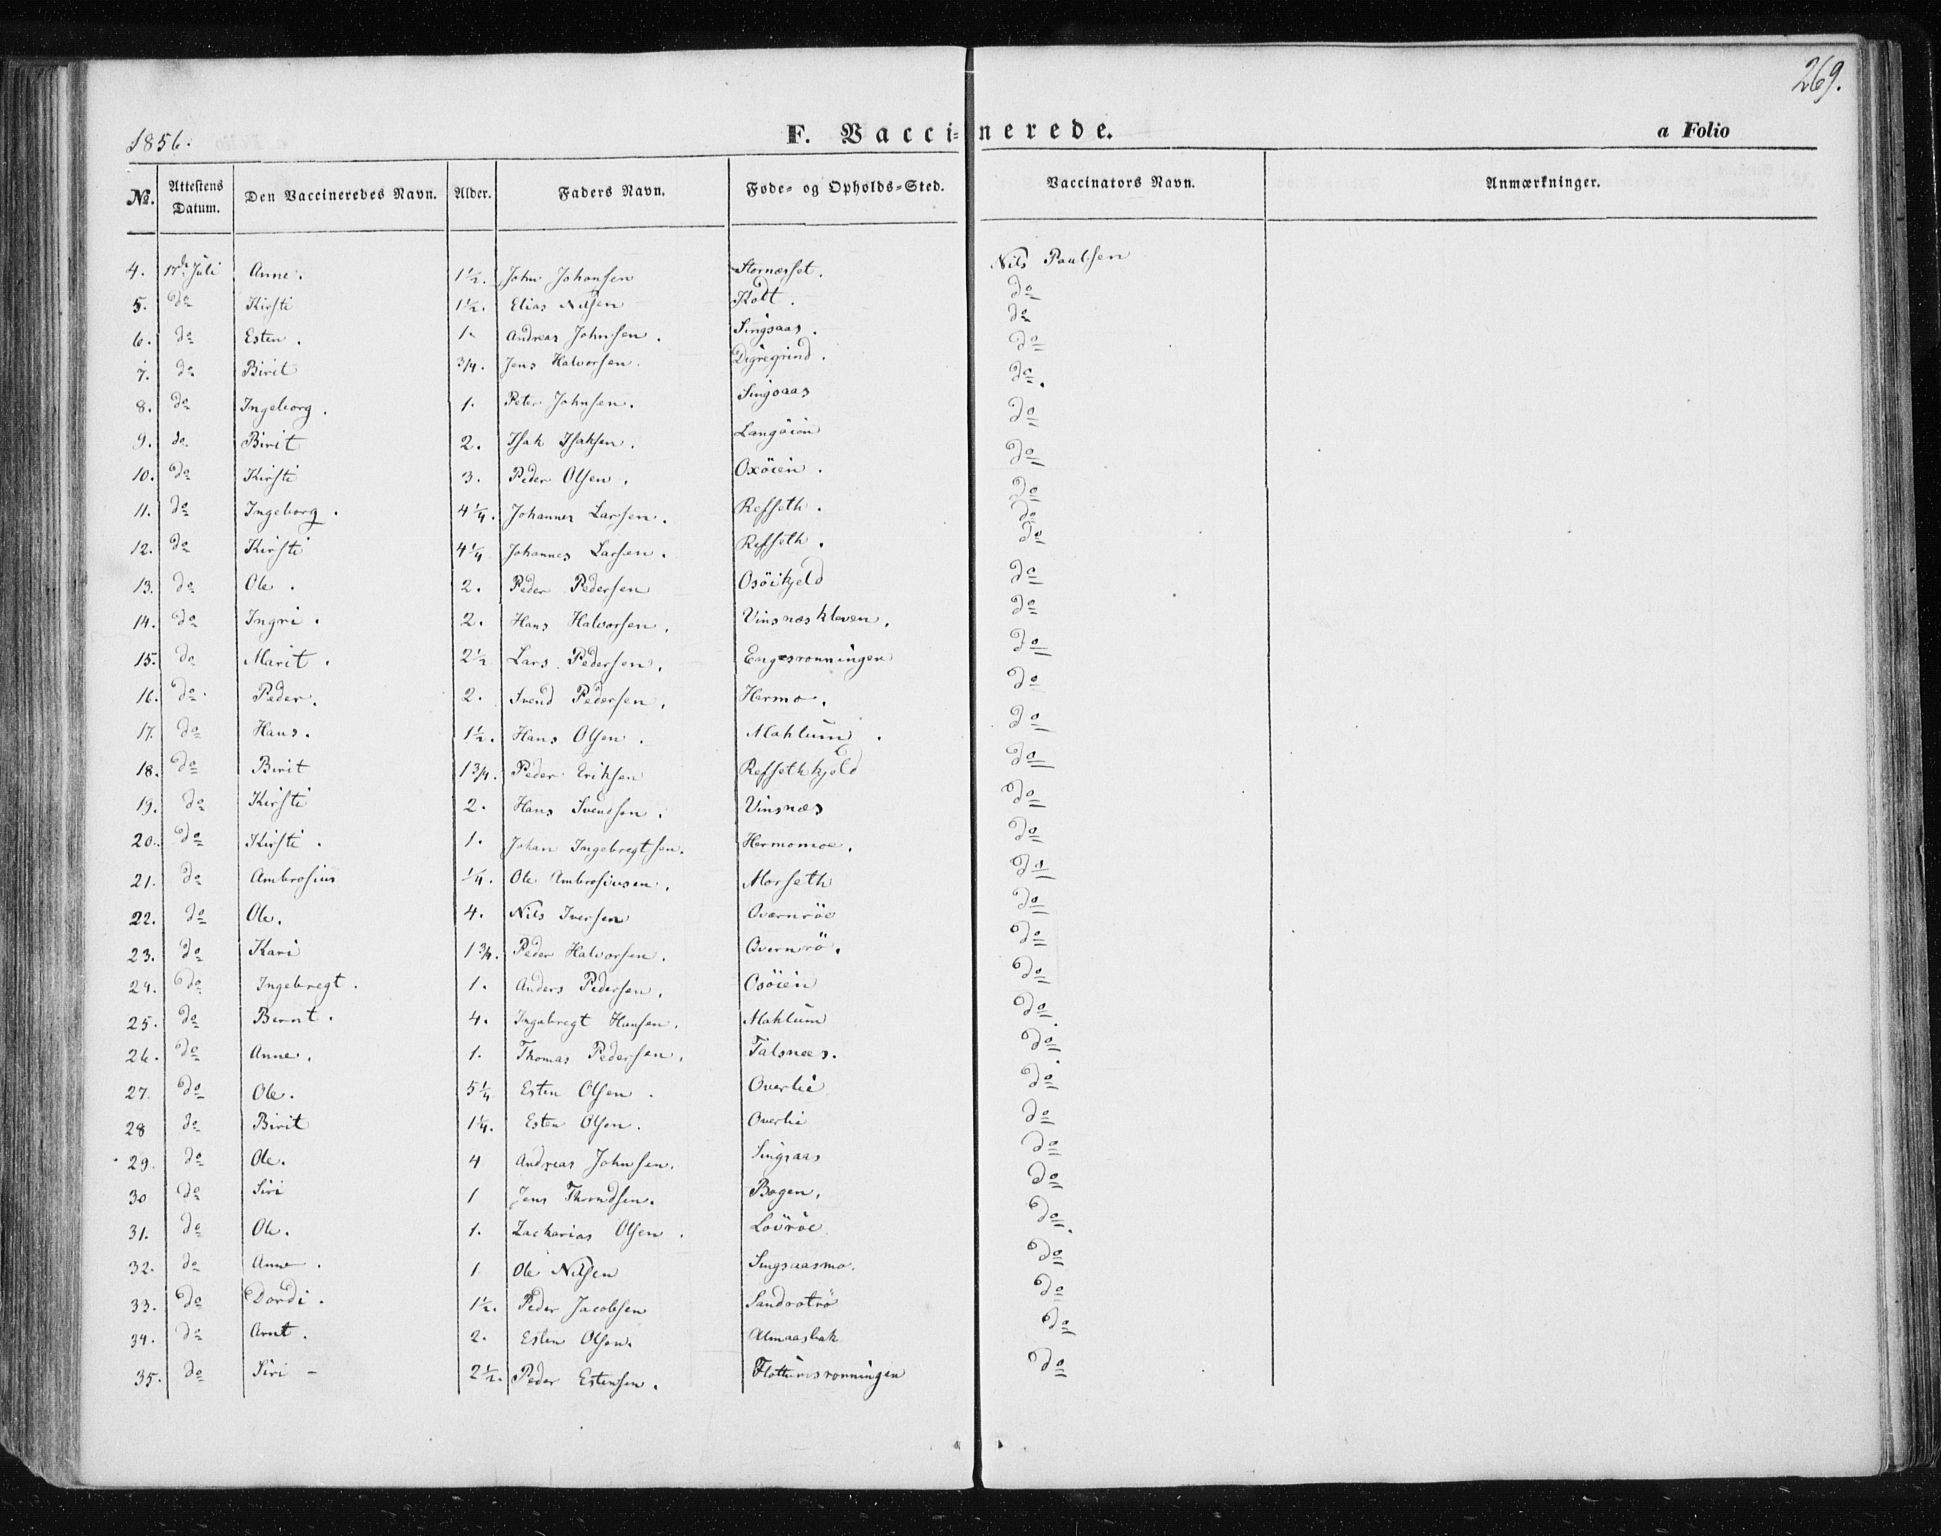 269.
1856. F. Vaccinerede. a Folio
No. Attestens Datum. Den Vaccineredes Navn. Alder. Faders Navn. Føde- og Opholds-Sted. Vaccinators Navn. Anmærkninger.
4. 17de Juli Anne. 1 1/2. John Johansen Størnesset. Nils Paulsen
5. do Kirsti 1 1/2. Elias Nilsen Kodt. do
6. do Esten. 1. Andreas Johnsen. Singsaas. do
7. do Birit 3/4. Jens Halvorsen. Digregrind. do
8. do Ingeborg. 1. Peter Johnsen. Singsaas do
9. do Birit 2. Isak Isaksen. Langöien do
10. do Kirsti 3. Peder Olsen. Oxöien. do
11. do Ingeborg. 4 1/4. Johannes Larsen. Refseth. do
12. do Kirsti 4 1/4 Johannes Larsen. Refseth. do
13. do Ole. 2. Peder Pedersen Osöikjeld do
14. do Ingri. 2. Hans Halvorsen. Vinsnæskleven. do
15. do Marit. 2 1/2 Lars Pedersen. Engesrønningen do
16. do Peder. 2. Svend Pedersen. Hermo. do
17. do Hans. 1 1/2. Hans Olsen. Mahlum. do
18. do Birit 1 3/4. Peder Eriksen Refsethkjeld do
19. do Kirsti 2. Hans Svendsen. Vinsnæs do
20. do Kirsti. 1. Johan Ingebregtsen. Hermomoe. do
21. do Ambrosius 1/4. Ole Ambrosiusen. Morseth do
22. do Ole. 4. Nils Iversen Qværnröe do
23. do Kari 1 3/4. Peder Halvorsen. Qvernrö. do
24. do Ingebregt. 1. Anders Pedersen. Osöien do
25. do Bernt. 4. Ingebregt Hansen. Mahlum do
26. do Anne. 1. Thomas Pedersen. Talsnæs. do
27. do Ole. 5 1/4 Esten Olsen. Overlie do
28 do Birit 1 1/4. Esten Olsen. Overlie do
29. do Ole. 4 Andreas Johnsen. Singsaas do
30 do Siri 1 Jens Thorndsen. Bogen. do
31. do Ole. 1. Zacharias Olsen. Lovröe do
32. do Anne. 1 Ole Nilsen Singsaasmo. do
33. do Dordi. 1 1/2. Peder Jacobsen Sandrotrö do
34. do Arnt. 2. Esten Olsen. Almaasbak do
35. do Siri - 2 1/2. Peder Estensen. Flottumsrønningen do